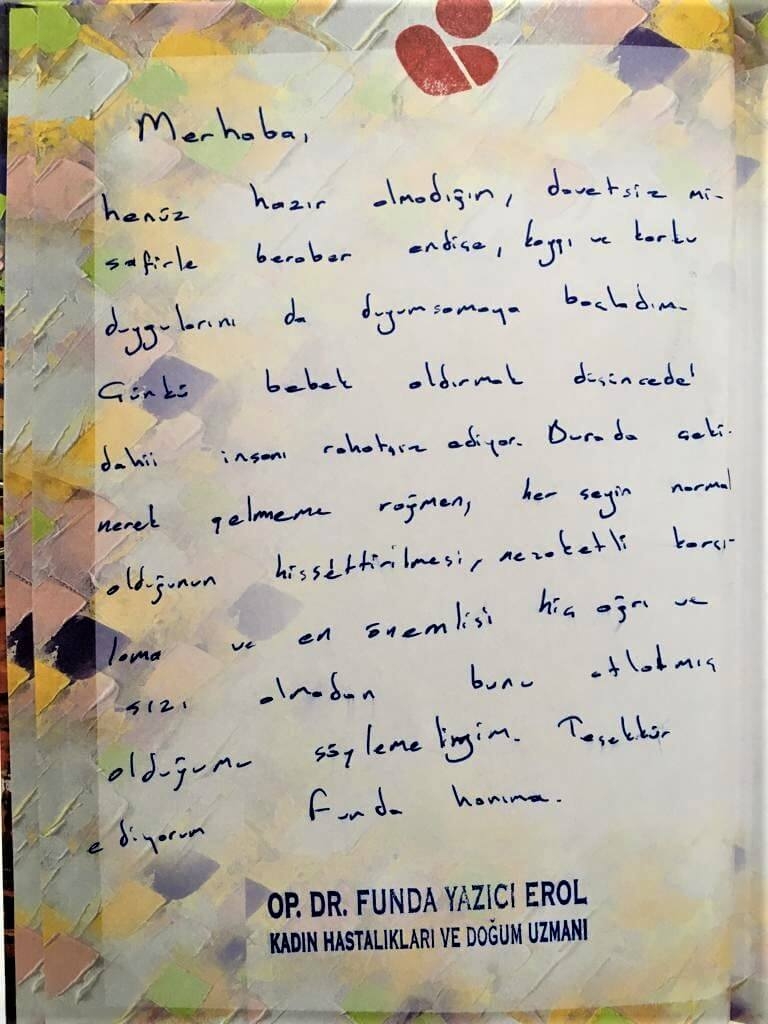 Merhaba,
henüz hazır olmadığım, davetsiz mi-
safirle beraber endişe, kaygı ve korku
duygularını da duyumsamaya başladım.
Günkü bebek aldırmak düşüncede
dahii insanı rahatsız ediyor. Burada çeki-
nerek gelmeme rağmen, her şeyin normal
olduğunun hissettirilmesi, nezaketli karşı-
lama ve en önemlisi hiç ağrı ve
sızı olmadan bunu atlatmış
olduğumu söylemeliyim. Teşekkür
ediyorum Funda hanıma.
OP. DR. FUNDA YAZICI EROL
KADIN HASTALIKLARI VE DOĞUM UZMANI